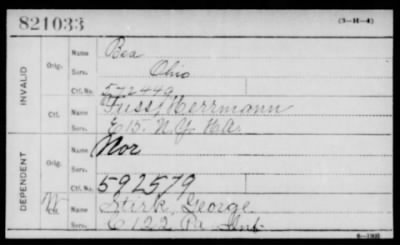 821033 (3-H-4)
INVALID
Orig. Name Bea
Serv. Ohio
Ctf. No. 572449
Name Fuss, Herrmann
Serv. E 15 N.Y. H.A.
DEPENDENT
Orig. Name Nor
Serv.
Ctf. No. 592579
W Ctf. Name Stirk, George
Serv. E 122 Pa Inf.